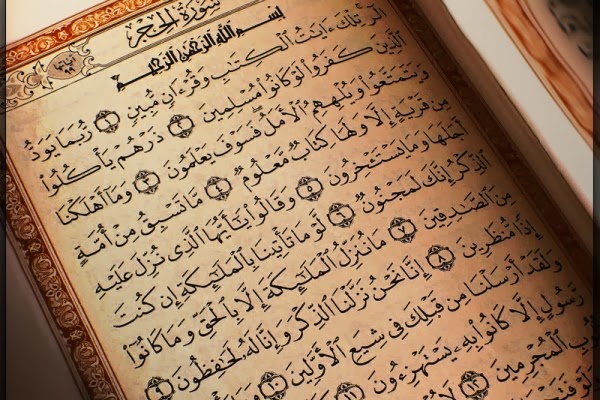 سُورَةُ الْحِجْرِ
بِسْمِ اللَّهِ الرَّحْمَٰنِ الرَّحِيمِ
الٓر تِلْكَ ءَايَٰتُ ٱلْكِتَٰبِ وَقُرْءَانٍ مُّبِينٍ ١ رُّبَمَا يَوَدُّ
ٱلَّذِينَ كَفَرُوا۟ لَوْ كَانُوا۟ مُسْلِمِينَ ٢ ذَرْهُمْ يَأْكُلُوا۟
وَيَتَمَتَّعُوا۟ وَيُلْهِهِمُ ٱلْأَمَلُ فَسَوْفَ يَعْلَمُونَ ٣ وَمَآ أَهْلَكْنَا
مِن قَرْيَةٍ إِلَّا وَلَهَا كِتَابٌ مَّعْلُومٌ ٤ مَّا تَسْبِقُ مِنْ أُمَّةٍ
أَجَلَهَا وَمَا يَسْتَـْٔخِرُونَ ٥ وَقَالُوا۟ يَٰٓأَيُّهَا ٱلَّذِى نُزِّلَ عَلَيْهِ
ٱلذِّكْرُ إِنَّكَ لَمَجْنُونٌ ٦ لَّوْ مَا تَأْتِينَا بِٱلْمَلَٰٓئِكَةِ إِن كُنتَ
مِنَ ٱلصَّٰدِقِينَ ٧ مَا نُنَزِّلُ ٱلْمَلَٰٓئِكَةَ إِلَّا بِٱلْحَقِّ وَمَا كَانُوٓا۟
إِذًا مُّنظَرِينَ ٨ إِنَّا نَحْنُ نَزَّلْنَا ٱلذِّكْرَ وَإِنَّا لَهُۥ لَحَٰفِظُونَ ٩
وَلَقَدْ أَرْسَلْنَا مِن قَبْلِكَ فِى شِيَعِ ٱلْأَوَّلِينَ ١٠
رَّسُولٍ إِلَّا كَانُوا۟ بِهِۦ يَسْتَهْزِءُونَ ١١
ٱلْمُجْرِمِينَ ١٢ لَا